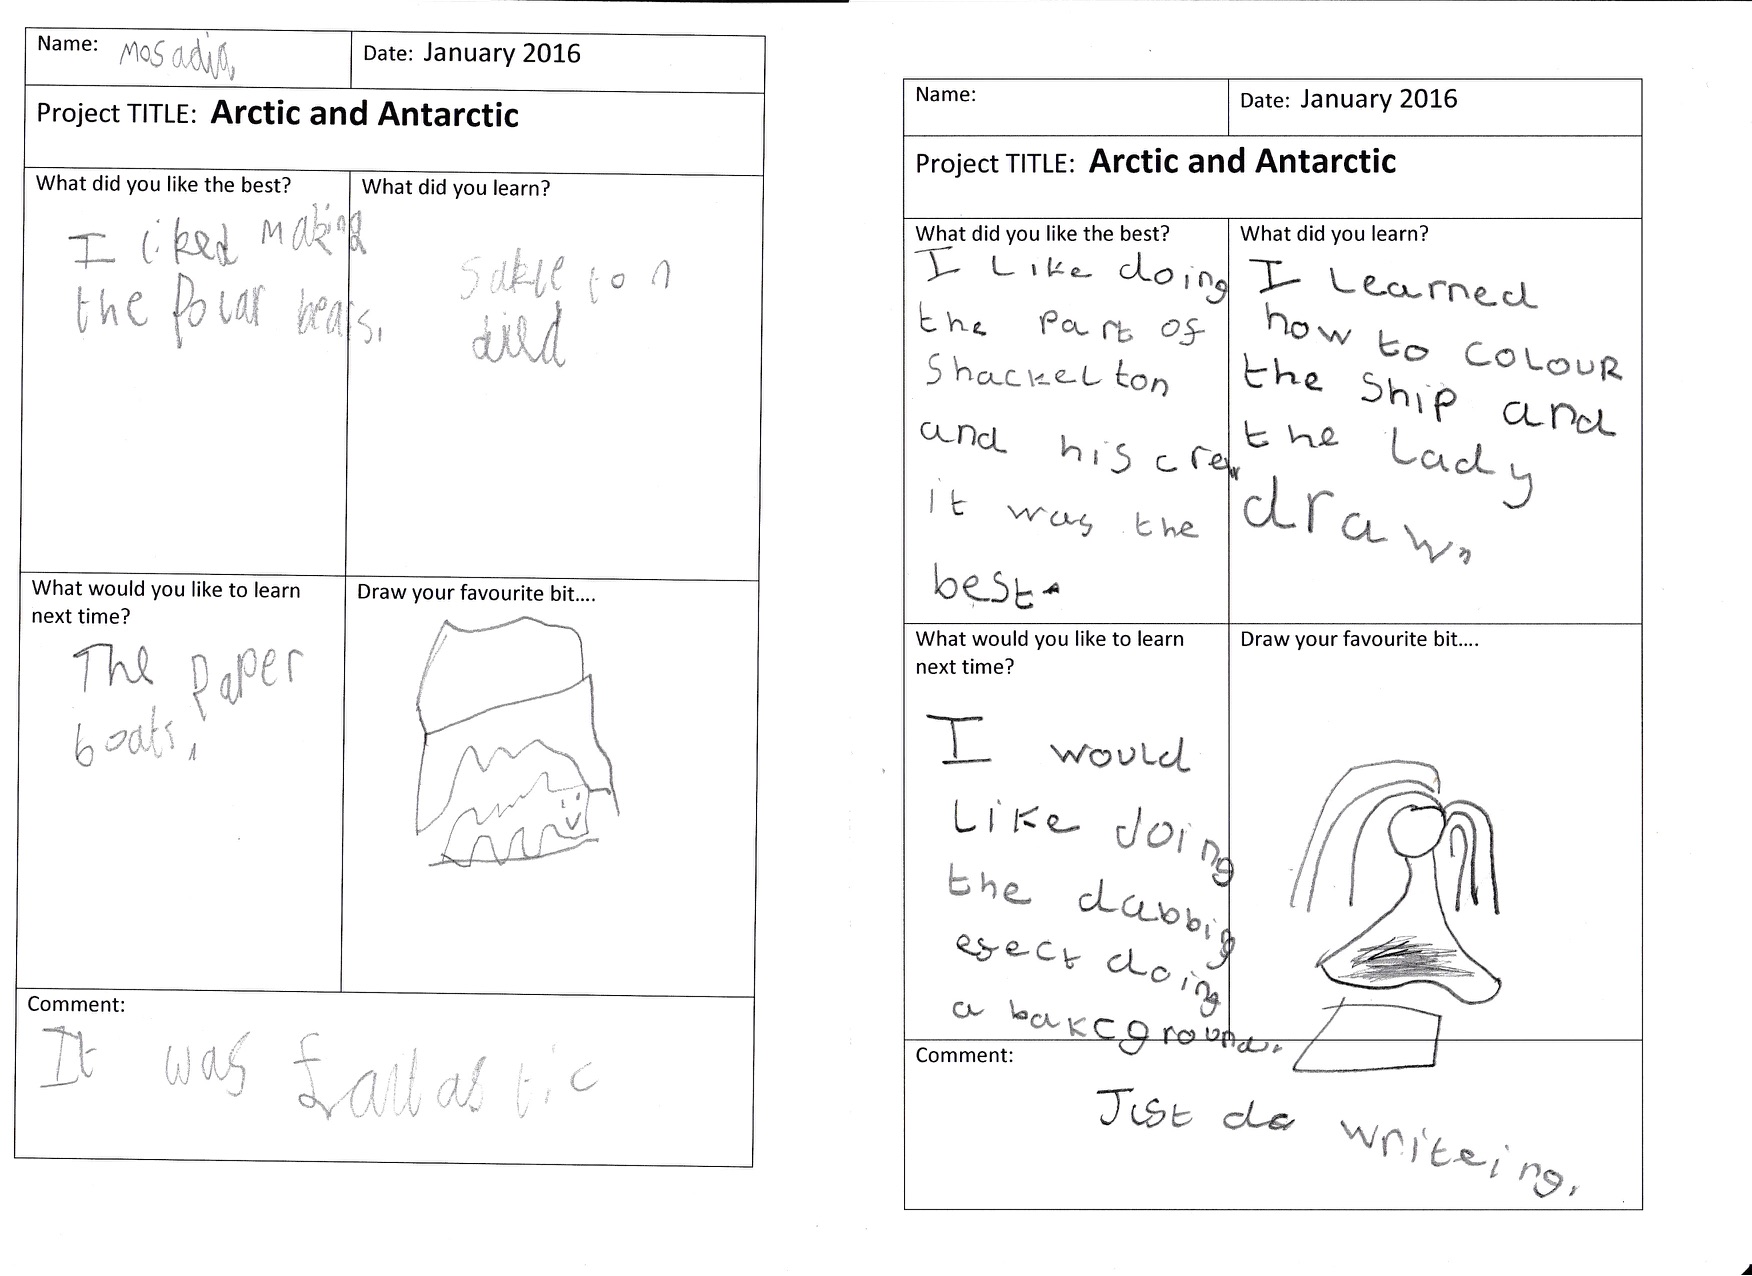 Name: Mosadia,
Date: January 2016
Project TITLE: Arctic and Antarctic
What did you like the best?
I liked making
the Polar bears.
What did you learn?
Sakle ton
died
What would you like to learn
next time?
The paper
boats,
Draw your favourite bit....
Comment:
It was fantastic
Name:
Date: January 2016
Project TITLE: Arctic and Antarctic
What did you like the best?
I Like doing
the part of
Shackelton
and his crew
it was the
best.
What did you learn?
I Learned
how to COLOUR
the Ship and
the Lady
draw,
What would you like to learn
next time?
I would
Like doing
the dabbig
efect doing
a bakcground.
Draw your favourite bit....
Comment:
Just do writeing.